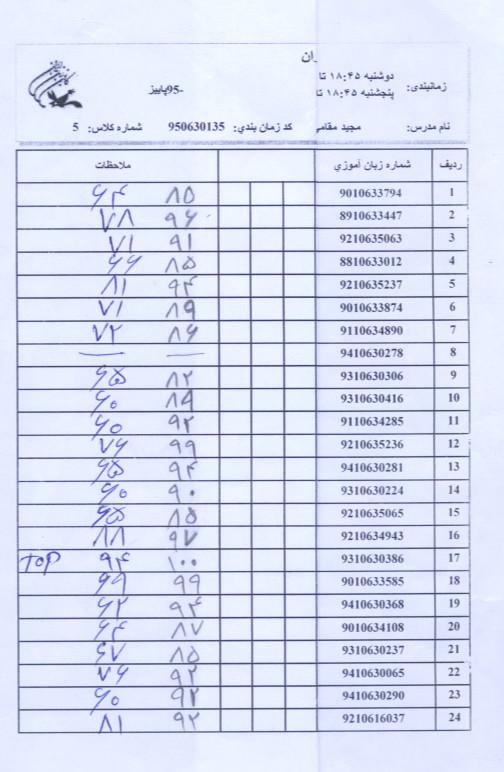 ـران
زمانبندی: دوشنبه ۱۸:۴۵ تا
پنجشنبه ۱۸:۴۵ تا
-95پاییز
نام مدرس: مجید مقامی کد زمان بندی: 950630135 شماره کلاس: 5
ردیف شماره زبان آموزی ملاحظات
1 9010633794 ۸۵ ۶۴
2 8910633447 ۹۶ ۷۸
3 9210635063 ۹۱ ۷۱
4 8810633012 ۸۵ ۶۶
5 9210635237 ۹۴ ۸۱
6 9010633874 ۸۹ ۷۱
7 9110634890 ۸۶ ۷۲
8 9410630278 — —
9 9310630306 ۸۲ ۶۵
10 9310630416 ۸۹ ۶۰
11 9110634285 ۹۲ ۶۰
12 9210635236 ۹۹ ۷۶
13 9410630281 ۹۴ ۶۵
14 9310630224 ۹۰ ۶۰
15 9210635065 ۸۵ ۶۵
16 9210634943 ۹۷ ۸۸
17 9310630386 ۱۰۰ ۹۴ TOP
18 9010633585 ۹۹ ۹۹
19 9410630368 ۹۴ ۶۲
20 9010634108 ۸۷ ۶۴
21 9310630237 ۸۵ ۶۷
22 9410630065 ۹۲ ۷۶
23 9410630290 ۹۲ ۶۰
24 9210616037 ۹۲ ۸۱